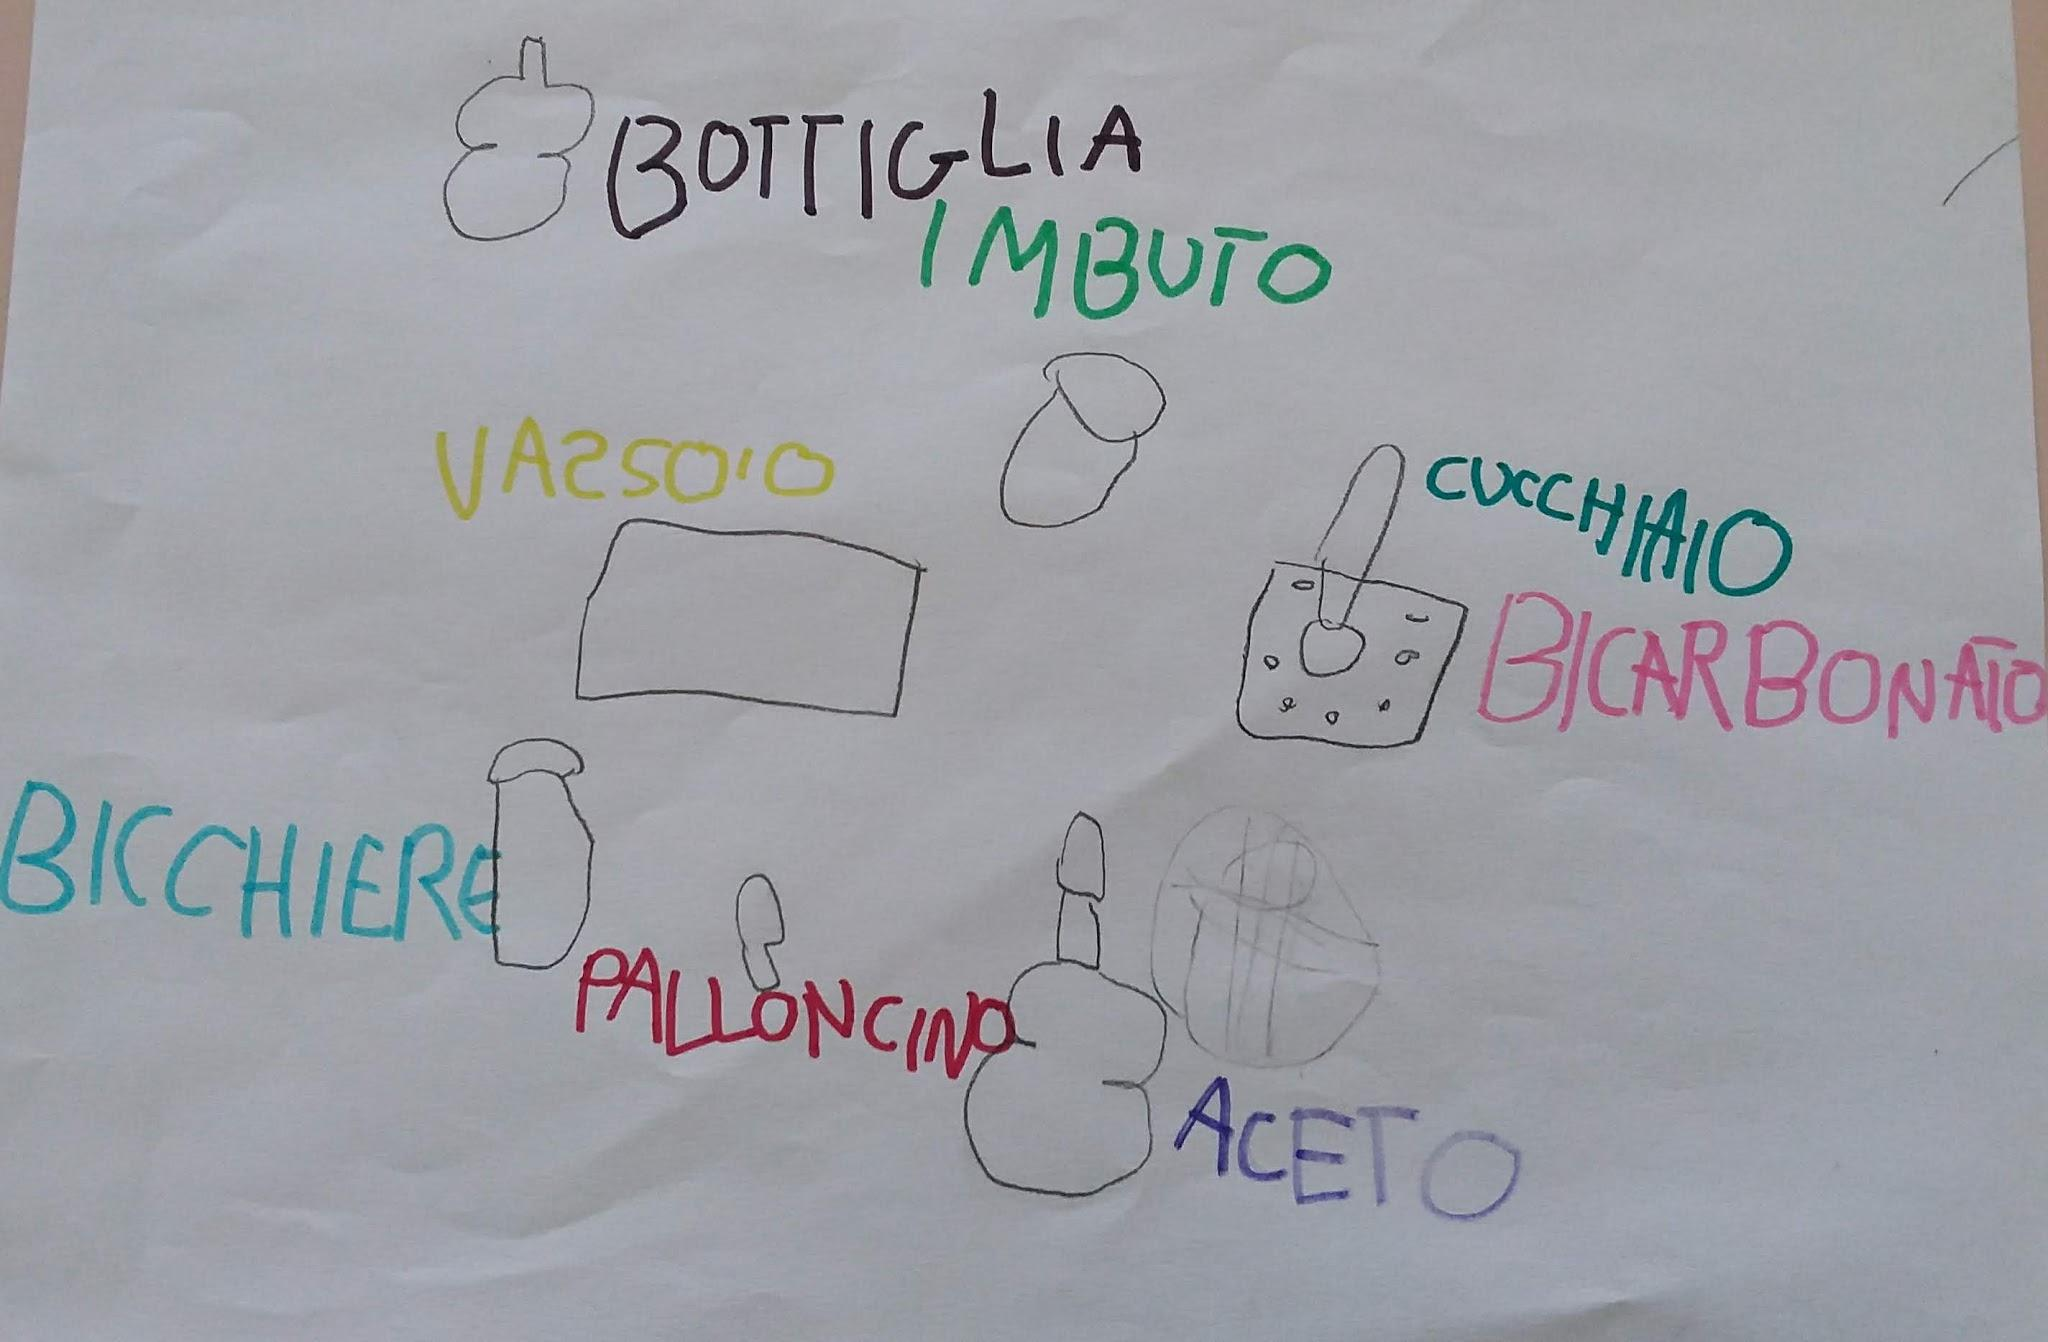 BOTTIGLIA
IMBUTO
VASSOIO
CUCCHIAIO
BICARBONATO
BICCHIERE
PALLONCINO
ACETO